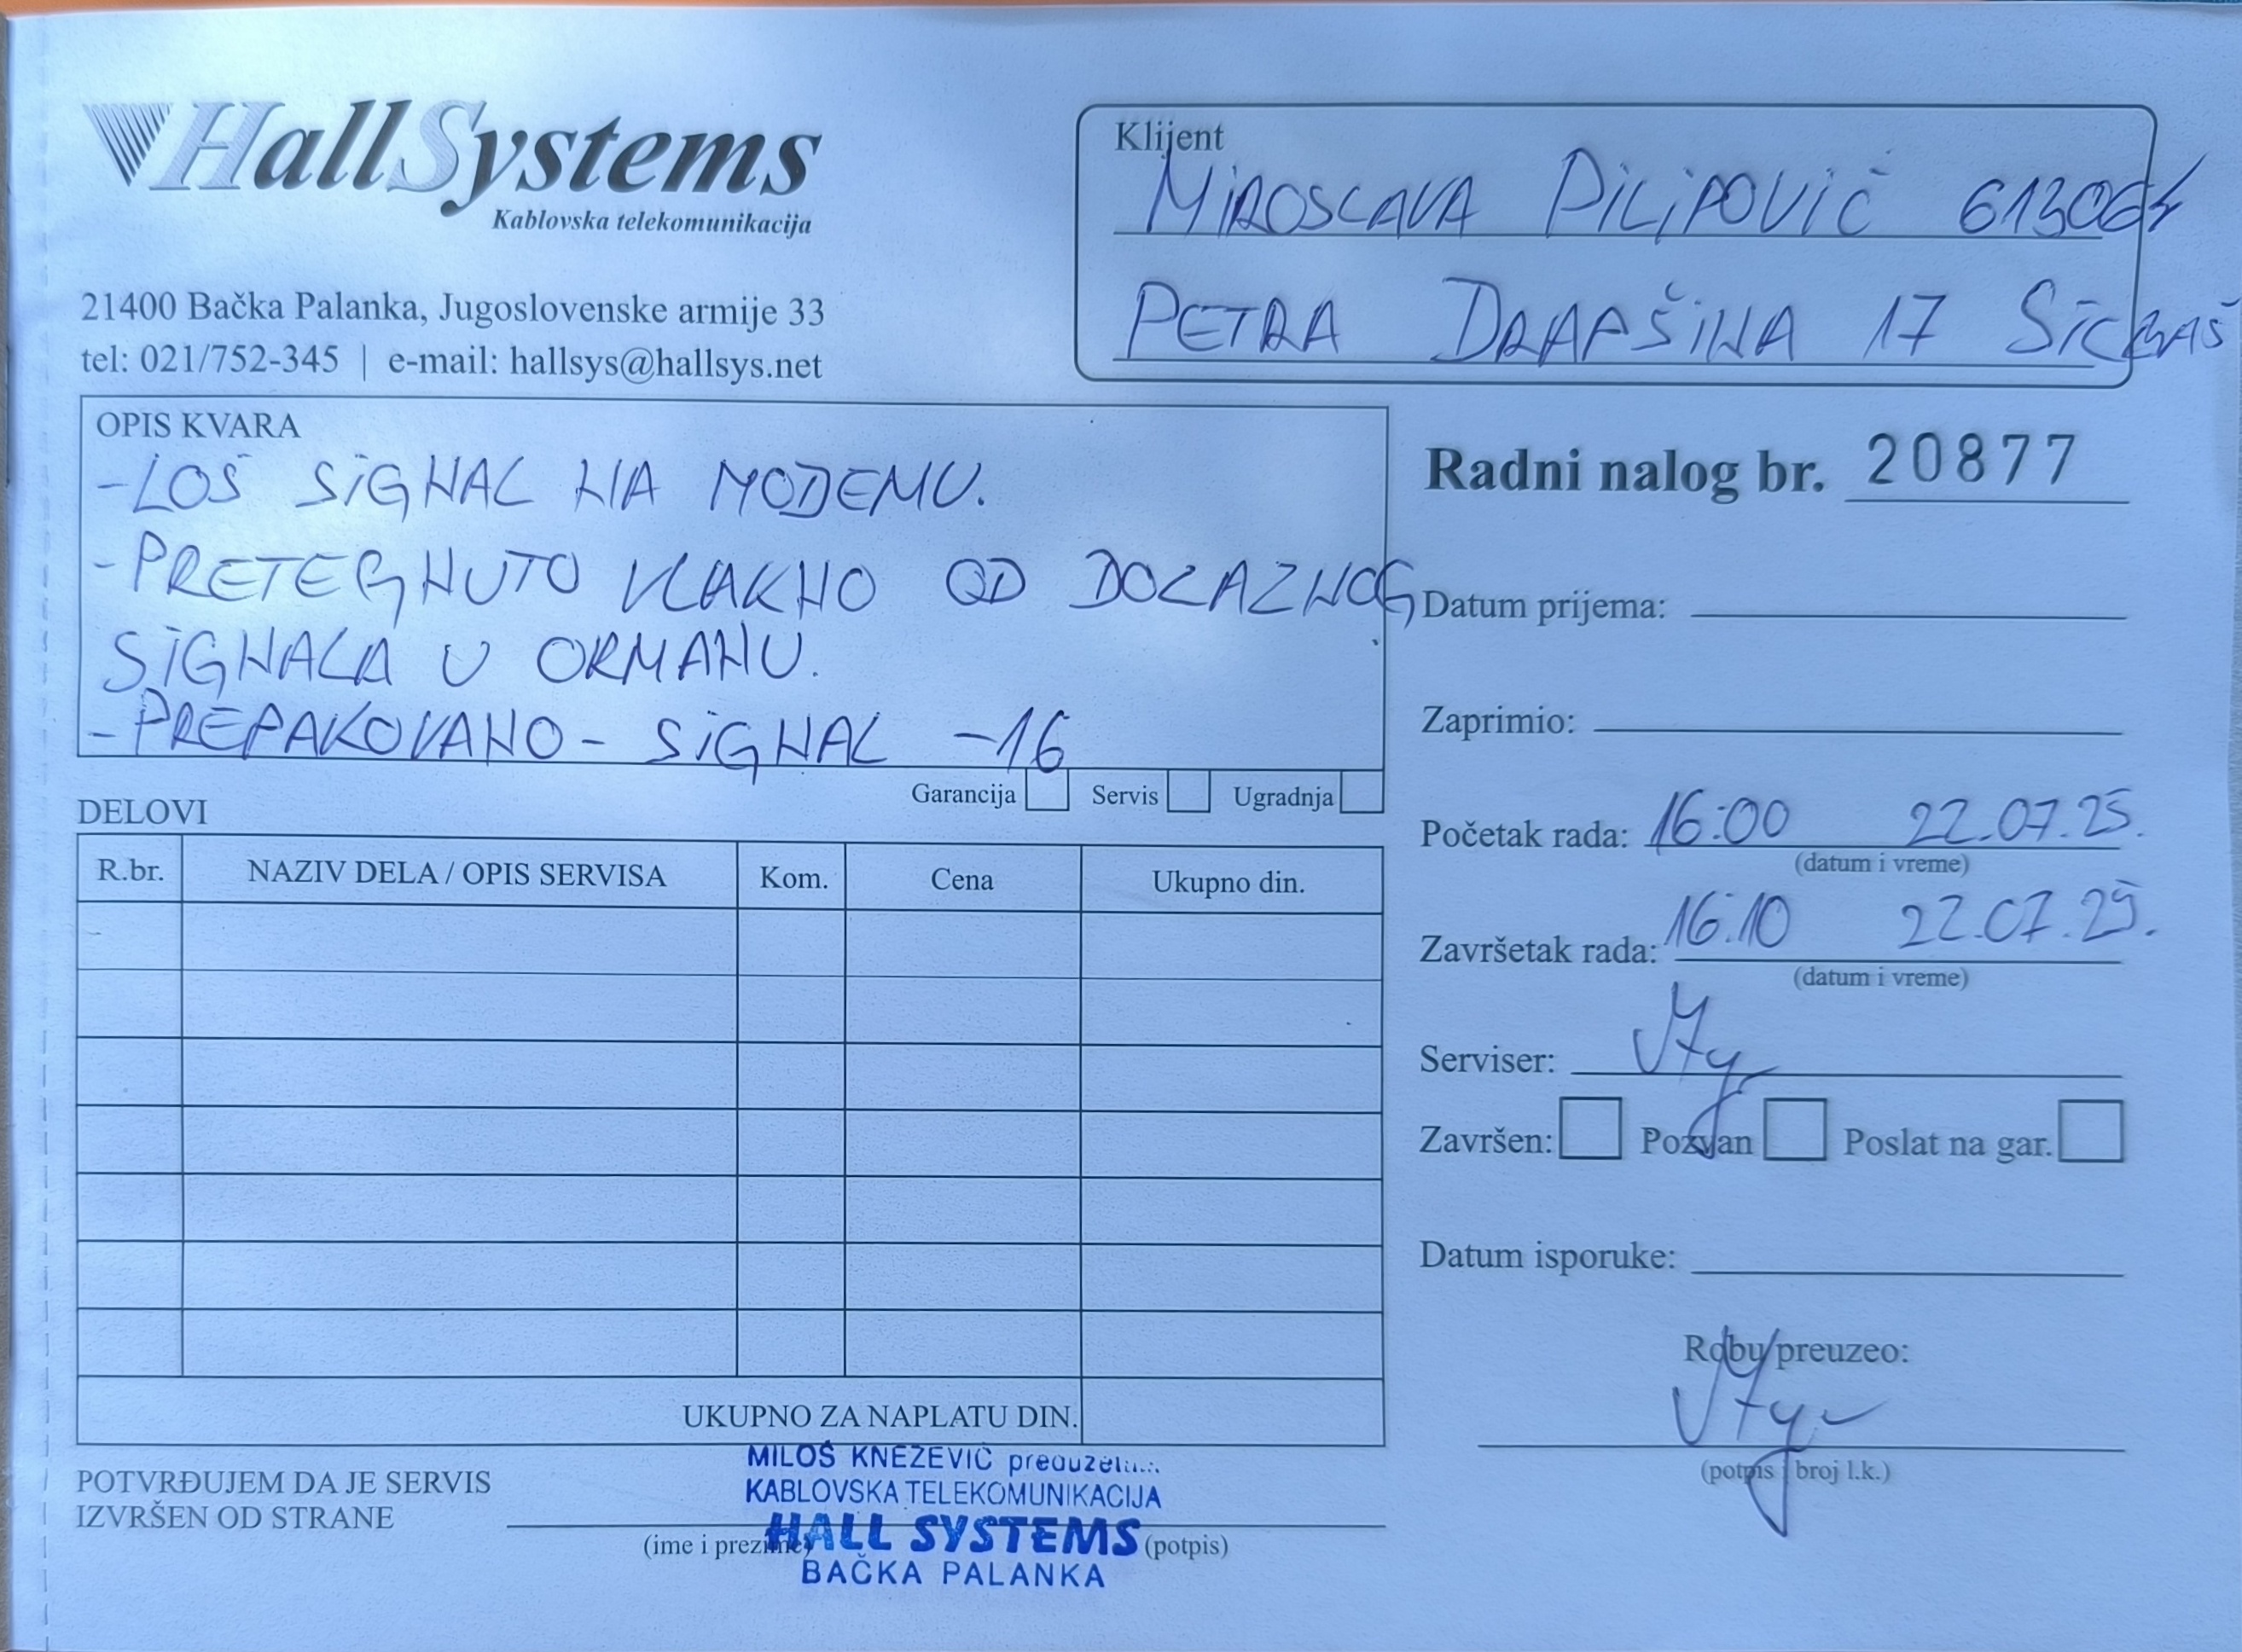 HallSystems
Kablovska telekomunikacija
21400 Bačka Palanka, Jugoslovenske armije 33
tel: 021/752-345 | e-mail: hallsys@hallsys.net
Klijent
MIROSLAVA PILIPOVIĆ
PETRA DRAPŠINA 17 SILBAŠ
OPIS KVARA
-LOŠ SIGNAL NA MODEMU.
-PRETEGNUTO VLAKNO OD DOLAZNOG
SIGNALA U ORMANU.
-PREPAKOVANO- SIGNAL -16
Garancija Servis Ugradnja
Radni nalog br. 20877
Datum prijema:
Zaprimio:
Početak rada: 16:00 22.07.25.
(datum i vreme)
Završetak rada: 16:10 22.07.25.
(datum i vreme)
Serviser:
Završen: Pozvan Poslat na gar.
Datum isporuke:
Robu preuzeo:
(potpis i broj l.k.)
DELOVI
R.br. NAZIV DELA / OPIS SERVISA Kom. Cena Ukupno din.
UKUPNO ZA NAPLATU DIN.
POTVRĐUJEM DA JE SERVIS
IZVRŠEN OD STRANE
(ime i prezime) (potpis)
MILOŠ KNEŽEVIĆ
KABLOVSKA TELEKOMUNIKACIJA
HALL SYSTEMS
BAČKA PALANKA